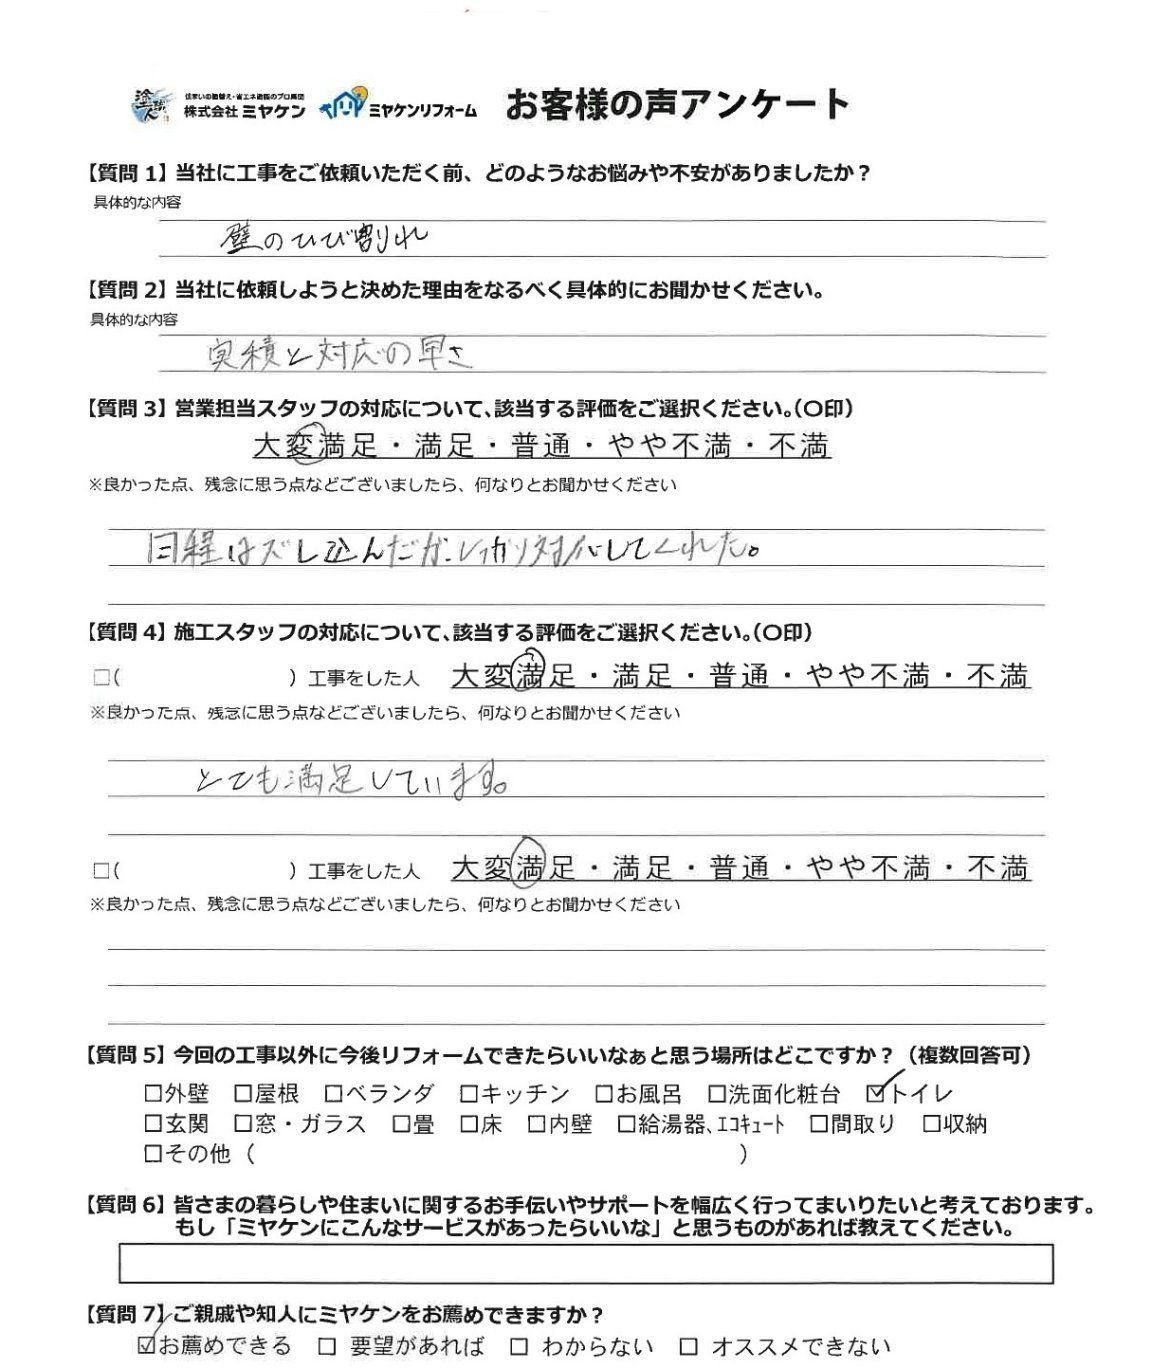 塗替え職人 住まいの塗替え・省エネ改修のプロ集団
株式会社 ミヤケン ミヤケンリフォーム お客様の声アンケート
【質問 1】当社に工事をご依頼いただく前、どのようなお悩みや不安がありましたか？
具体的な内容
壁のひび割れ
【質問 2】当社に依頼しようと決めた理由をなるべく具体的にお聞かせください。
具体的な内容
実積と対応の早さ
【質問 3】営業担当スタッフの対応について、該当する評価をご選択ください。（〇印）
大変満足・満足・普通・やや不満・不満
※良かった点、残念に思う点などございましたら、何なりとお聞かせください
日程はズレ込んだが、しっかり対応してくれた。
【質問 4】施工スタッフの対応について、該当する評価をご選択ください。（〇印）
□（ ）工事をした人 大変満足・満足・普通・やや不満・不満
※良かった点、残念に思う点などございましたら、何なりとお聞かせください
とても満足しています。
□（ ）工事をした人 大変満足・満足・普通・やや不満・不満
※良かった点、残念に思う点などございましたら、何なりとお聞かせください
【質問 5】今回の工事以外に今後リフォームできたらいいなぁと思う場所はどこですか？（複数回答可）
□外壁 □屋根 □ベランダ □キッチン □お風呂 □洗面化粧台 ☑トイレ
□玄関 □窓・ガラス □畳 □床 □内壁 □給湯器、ｴｺｷｭｰﾄ □間取り □収納
□その他（ ）
【質問 6】皆さまの暮らしや住まいに関するお手伝いやサポートを幅広く行ってまいりたいと考えております。
もし「ミヤケンにこんなサービスがあったらいいな」と思うものがあれば教えてください。
【質問 7】ご親戚や知人にミヤケンをお薦めできますか？
☑お薦めできる □ 要望があれば □ わからない □ オススメできない